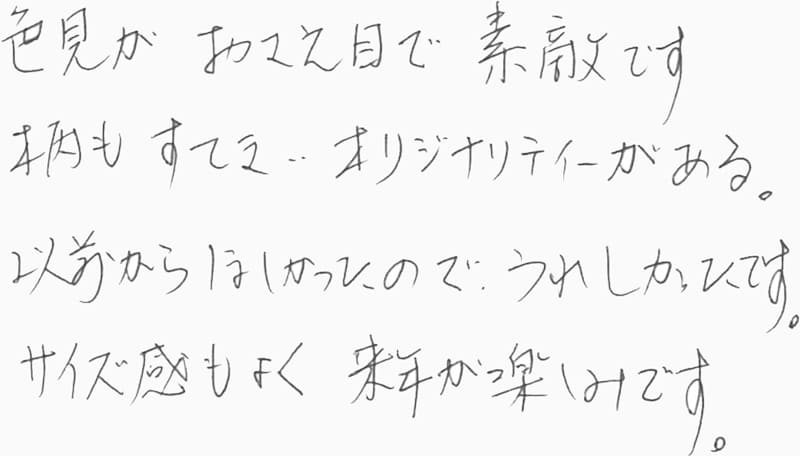 色見が おさえ目で 素敵です
柄も すてき‥ オリジナリティーがある。
以前からほしかったので、うれしかったです。
サイズ感もよく 来年が楽しみです。